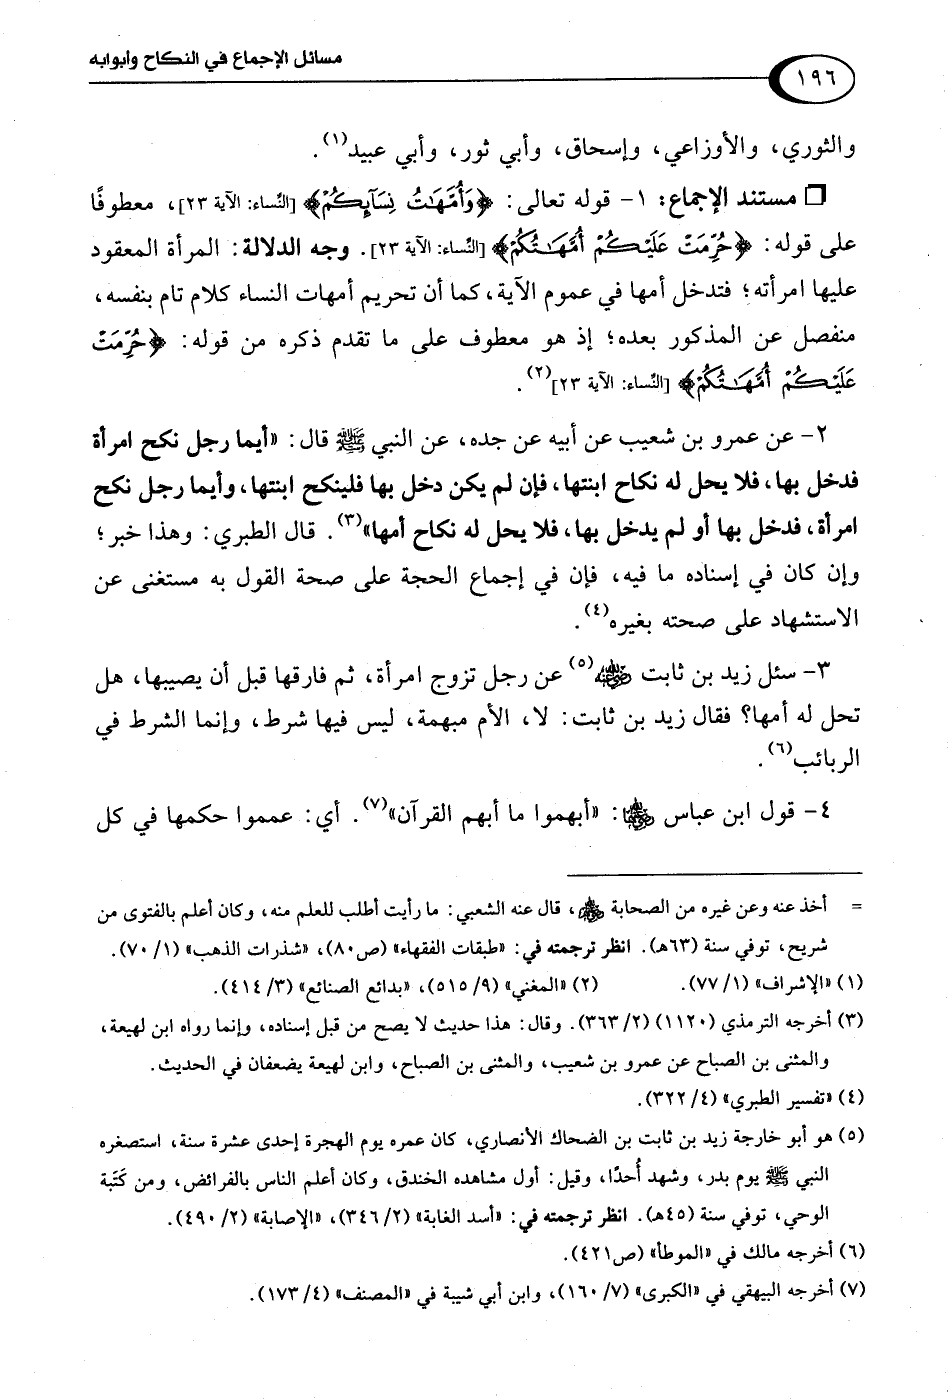 مسائل الإجماع في النكاح وأبوابه
١٩٦
والثوري، والأوزاعي، وإسحاق، وأبي ثور، وأبي عبيد(١).
❑ مستند الإجماع: ١- قوله تعالى: ﴿وَأُمَّهَٰتُ نِسَآئِكُمْ﴾ [النِّساء: الآية ٢٣]، معطوفًا
على قوله: ﴿حُرِّمَتْ عَلَيْكُمْ أُمَّهَٰتُكُمْ﴾ [النِّساء: الآية ٢٣]. وجه الدلالة: المرأة المعقود
عليها امرأته؛ فتدخل أمها في عموم الآية، كما أن تحريم أمهات النساء كلام تام بنفسه،
منفصل عن المذكور بعده؛ إذ هو معطوف على ما تقدم ذكره من قوله: ﴿حُرِّمَتْ
عَلَيْكُمْ أُمَّهَٰتُكُمْ﴾ [النِّساء: الآية ٢٣](٢).
٢- عن عمرو بن شعيب عن أبيه عن جده، عن النبي ﷺ قال: «أيما رجل نكح امرأة
فدخل بها، فلا يحل له نكاح ابنتها، فإن لم يكن دخل بها فلينكح ابنتها، وأيما رجل نكح
امرأة، فدخل بها أو لم يدخل بها، فلا يحل له نكاح أمها»(٣). قال الطبري: وهذا خبر؛
وإن كان في إسناده ما فيه، فإن في إجماع الحجة على صحة القول به مستغنى عن
الاستشهاد على صحته بغيره(٤).
٣- سئل زيد بن ثابت رضي الله عنه(٥) عن رجل تزوج امرأة، ثم فارقها قبل أن يصيبها، هل
تحل له أمها؟ فقال زيد بن ثابت: لا، الأم مبهمة، ليس فيها شرط، وإنما الشرط في
الربائب(٦).
٤- قول ابن عباس رضي الله عنهما: «أبهموا ما أبهم القرآن»(٧). أي: عمموا حكمها في كل
= أخذ عنه وعن غيره من الصحابة رضي الله عنهم، قال عنه الشعبي: ما رأيت أطلب للعلم منه، وكان أعلم بالفتوى من
شريح، توفي سنة (٦٣هـ). انظر ترجمته في: «طبقات الفقهاء» (ص٨٠)، «شذرات الذهب» (١/ ٧٠).
(١) «الإشراف» (١/ ٧٧). (٢) «المغني» (٩/ ٥١٥)، «بدائع الصنائع» (٣/ ٤١٤).
(٣) أخرجه الترمذي (١١٢٠) (٢/ ٣٦٣). وقال: هذا حديث لا يصح من قبل إسناده، وإنما رواه ابن لهيعة،
والمثنى بن الصباح عن عمرو بن شعيب، والمثنى بن الصباح، وابن لهيعة يضعفان في الحديث.
(٤) «تفسير الطبري» (٤/ ٣٢٢).
(٥) هو أبو خارجة زيد بن ثابت بن الضحاك الأنصاري، كان عمره يوم الهجرة إحدى عشرة سنة، استصغره
النبي ﷺ يوم بدر، وشهد أُحدًا، وقيل: أول مشاهده الخندق، وكان أعلم الناس بالفرائض، ومن كَتَبة
الوحي، توفي سنة (٤٥هـ). انظر ترجمته في: «أسد الغابة» (٢/ ٣٤٦)، «الإصابة» (٢/ ٤٩٠).
(٦) أخرجه مالك في «الموطأ» (ص٤٢١).
(٧) أخرجه البيهقي في «الكبرى» (٧/ ١٦٠)، وابن أبي شيبة في «المصنف» (٤/ ١٧٣).